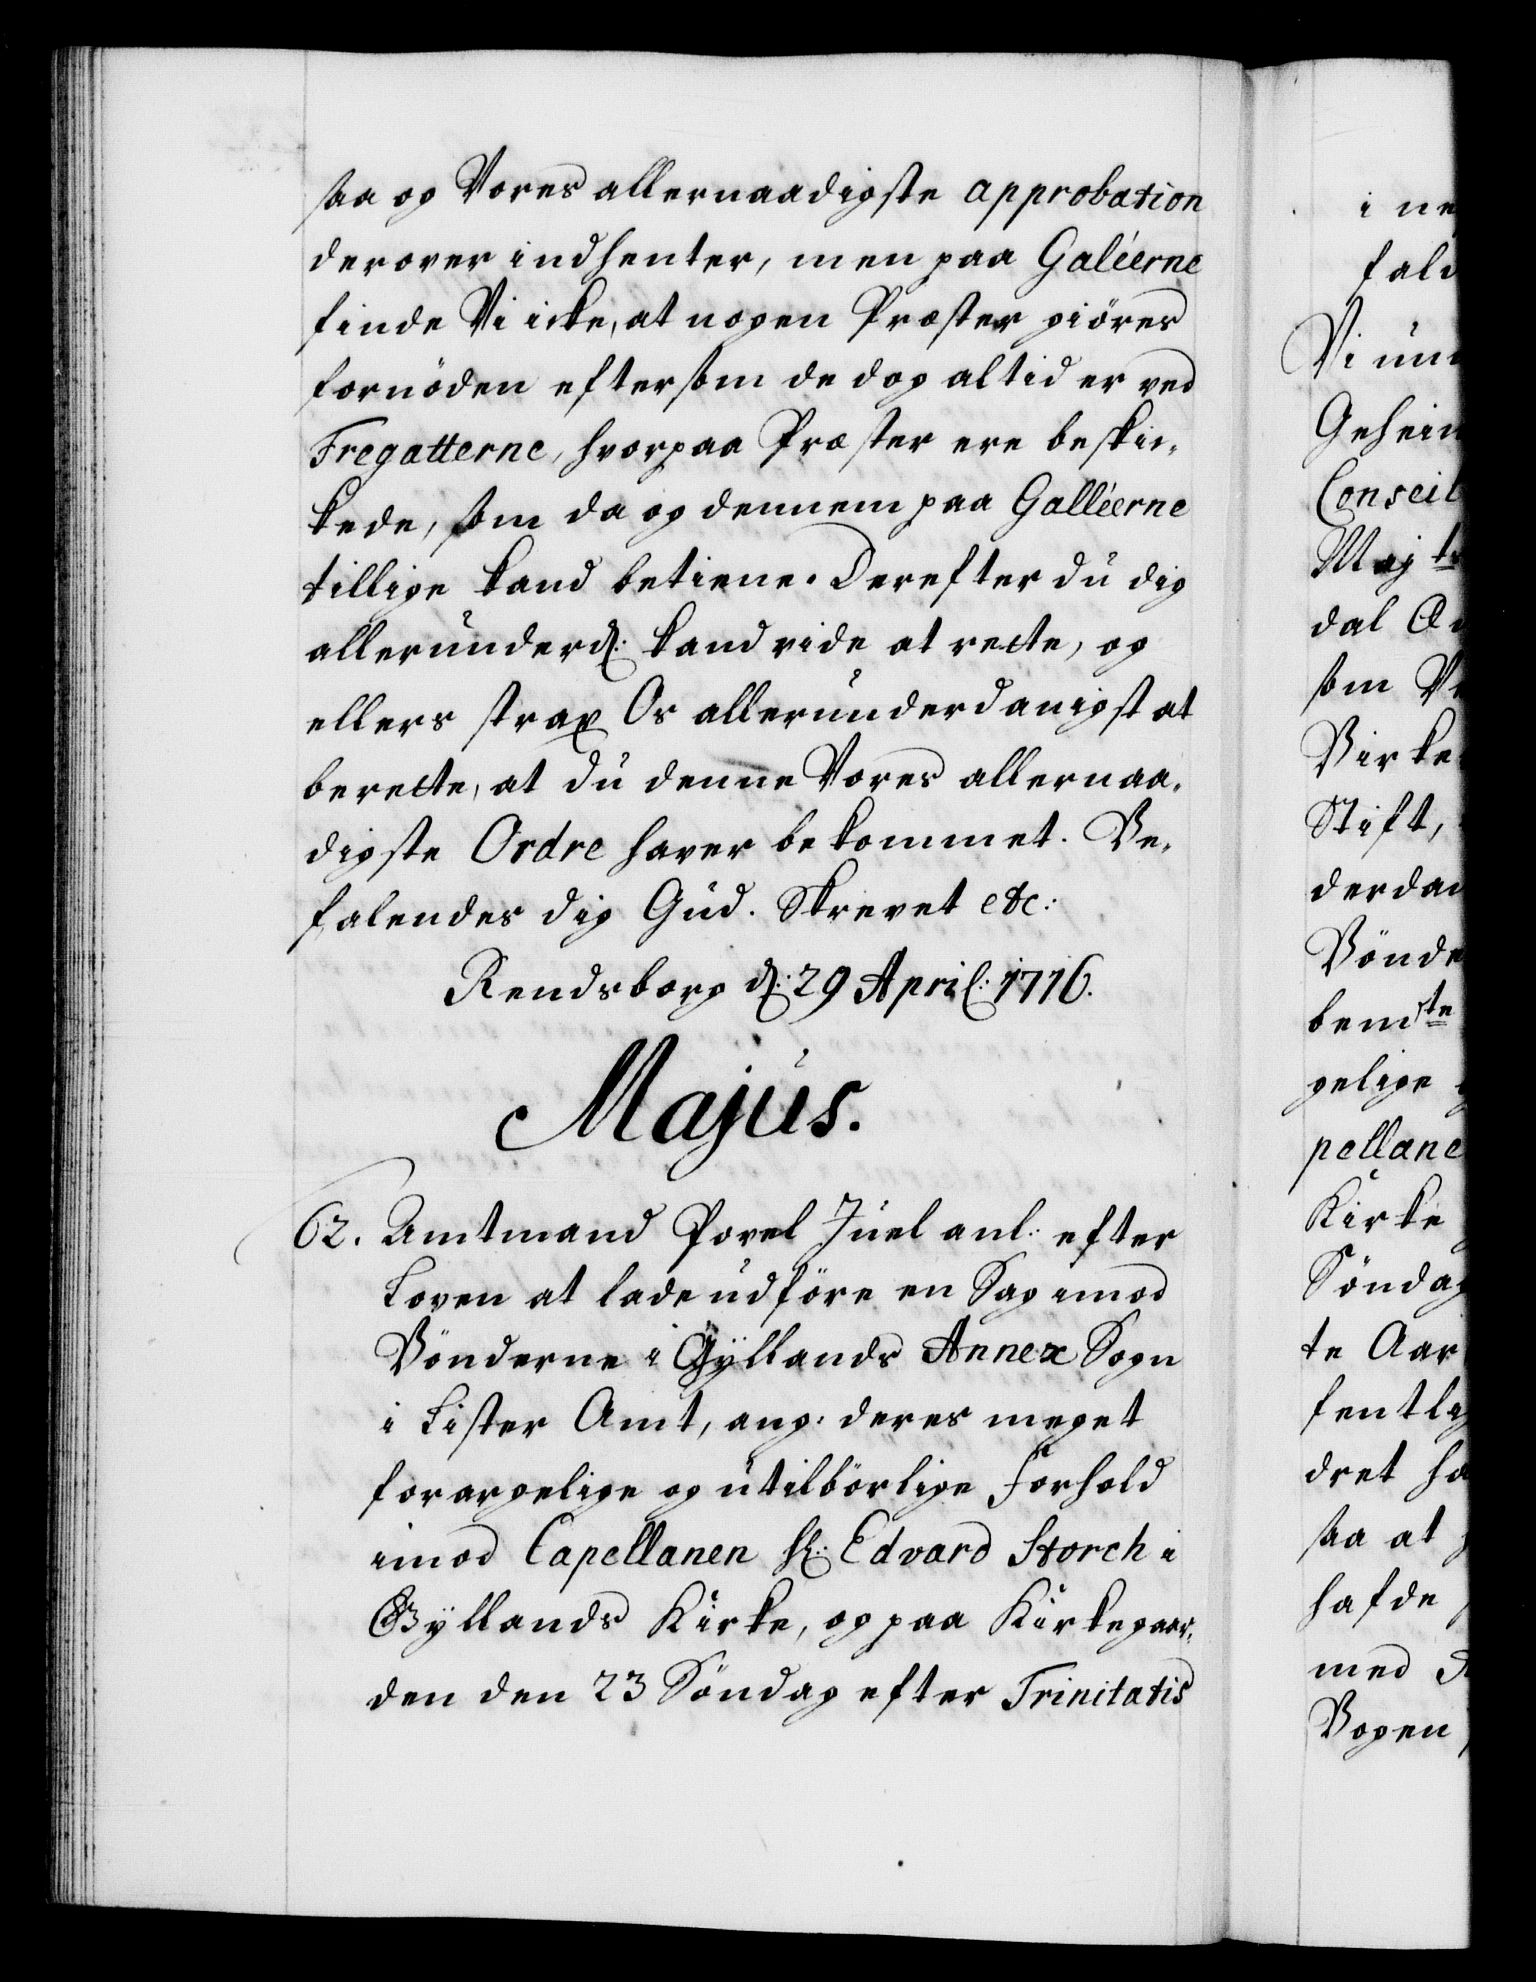 saa og Vores allernaadigste approbation
derover indhenter, men paa Galéerne
finde Vi icke, at nogen Præster giöres
fornöden eftersom de dog altid er ved
Fregatterne, hvorpaa Præster ere beskic-
kede, som da og dennem paa Galléerne
tillige kand betiene. Derefter du dig
allerunderd: kand vide at rette, og
ellers strax Os allerunderdanigst at
berette, at du denne Vores allernaa-
digste Ordre haver bekommet. Be-
falendes dig Gud. Skrevet etc:
Rendsborg d: 29 April: 1716.
Majus.
62. Amtmand Povel Juel anl: efter
Loven at lade udföre en Sag imod
Bönderne i Gyllands Annex Sogn
i Lister Amt, ang: deres meget
forargelige og utilbörlige Forhold
imod Capellanen Hr: Edvard Storch i
Gyllands Kirke, og paa Kirkegaar-
den den 23 Söndag efter Trinitatis
i ne
fald
Vi un
Geheim
Conseil
Maj ts
dal
som
Birke
Stift,
derdan
Bönde
bemte
gelige
pellane
Kirke
Söndag
te Aar
fentlig
dret ha
saa at
hafde
med
Bogen